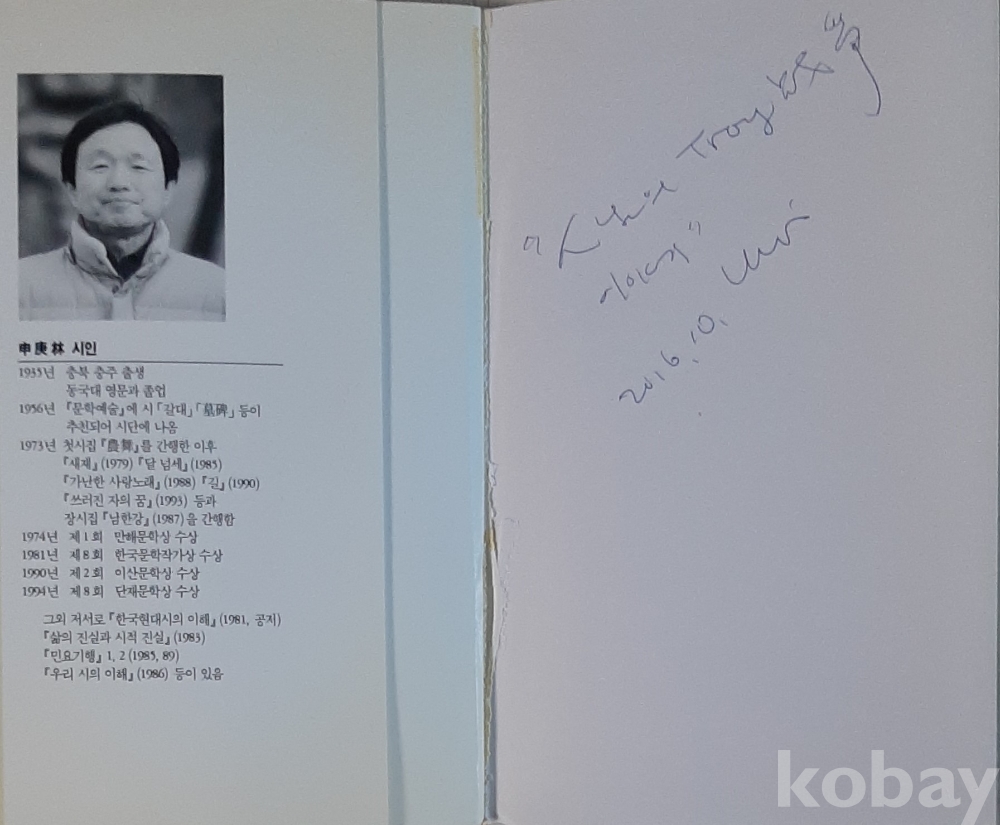 申庚林 시인
1935년 충북 충주 출생
동국대 영문과 졸업
1956년 『문학예술』에 시 「갈대」 「墓碑」 등이
추천되어 시단에 나옴
1973년 첫시집 『農舞』를 간행한 이후
『새재』(1979) 『달 넘세』(1985)
『가난한 사랑노래』(1988) 『길』(1990)
『쓰러진 자의 꿈』(1993) 등과
장시집 『남한강』(1987)을 간행함
1974년 제1회 만해문학상 수상
1981년 제8회 한국문학작가상 수상
1990년 제2회 이산문학상 수상
1994년 제8회 단재문학상 수상
그외 저서로 『한국현대시의 이해』(1981, 공저)
『삶의 진실과 시적 진실』(1983)
『민요기행』 1, 2 (1985, 89)
『우리 시의 이해』(1986) 등이 있음
Troy
이야기"
2016. 10.
kobay